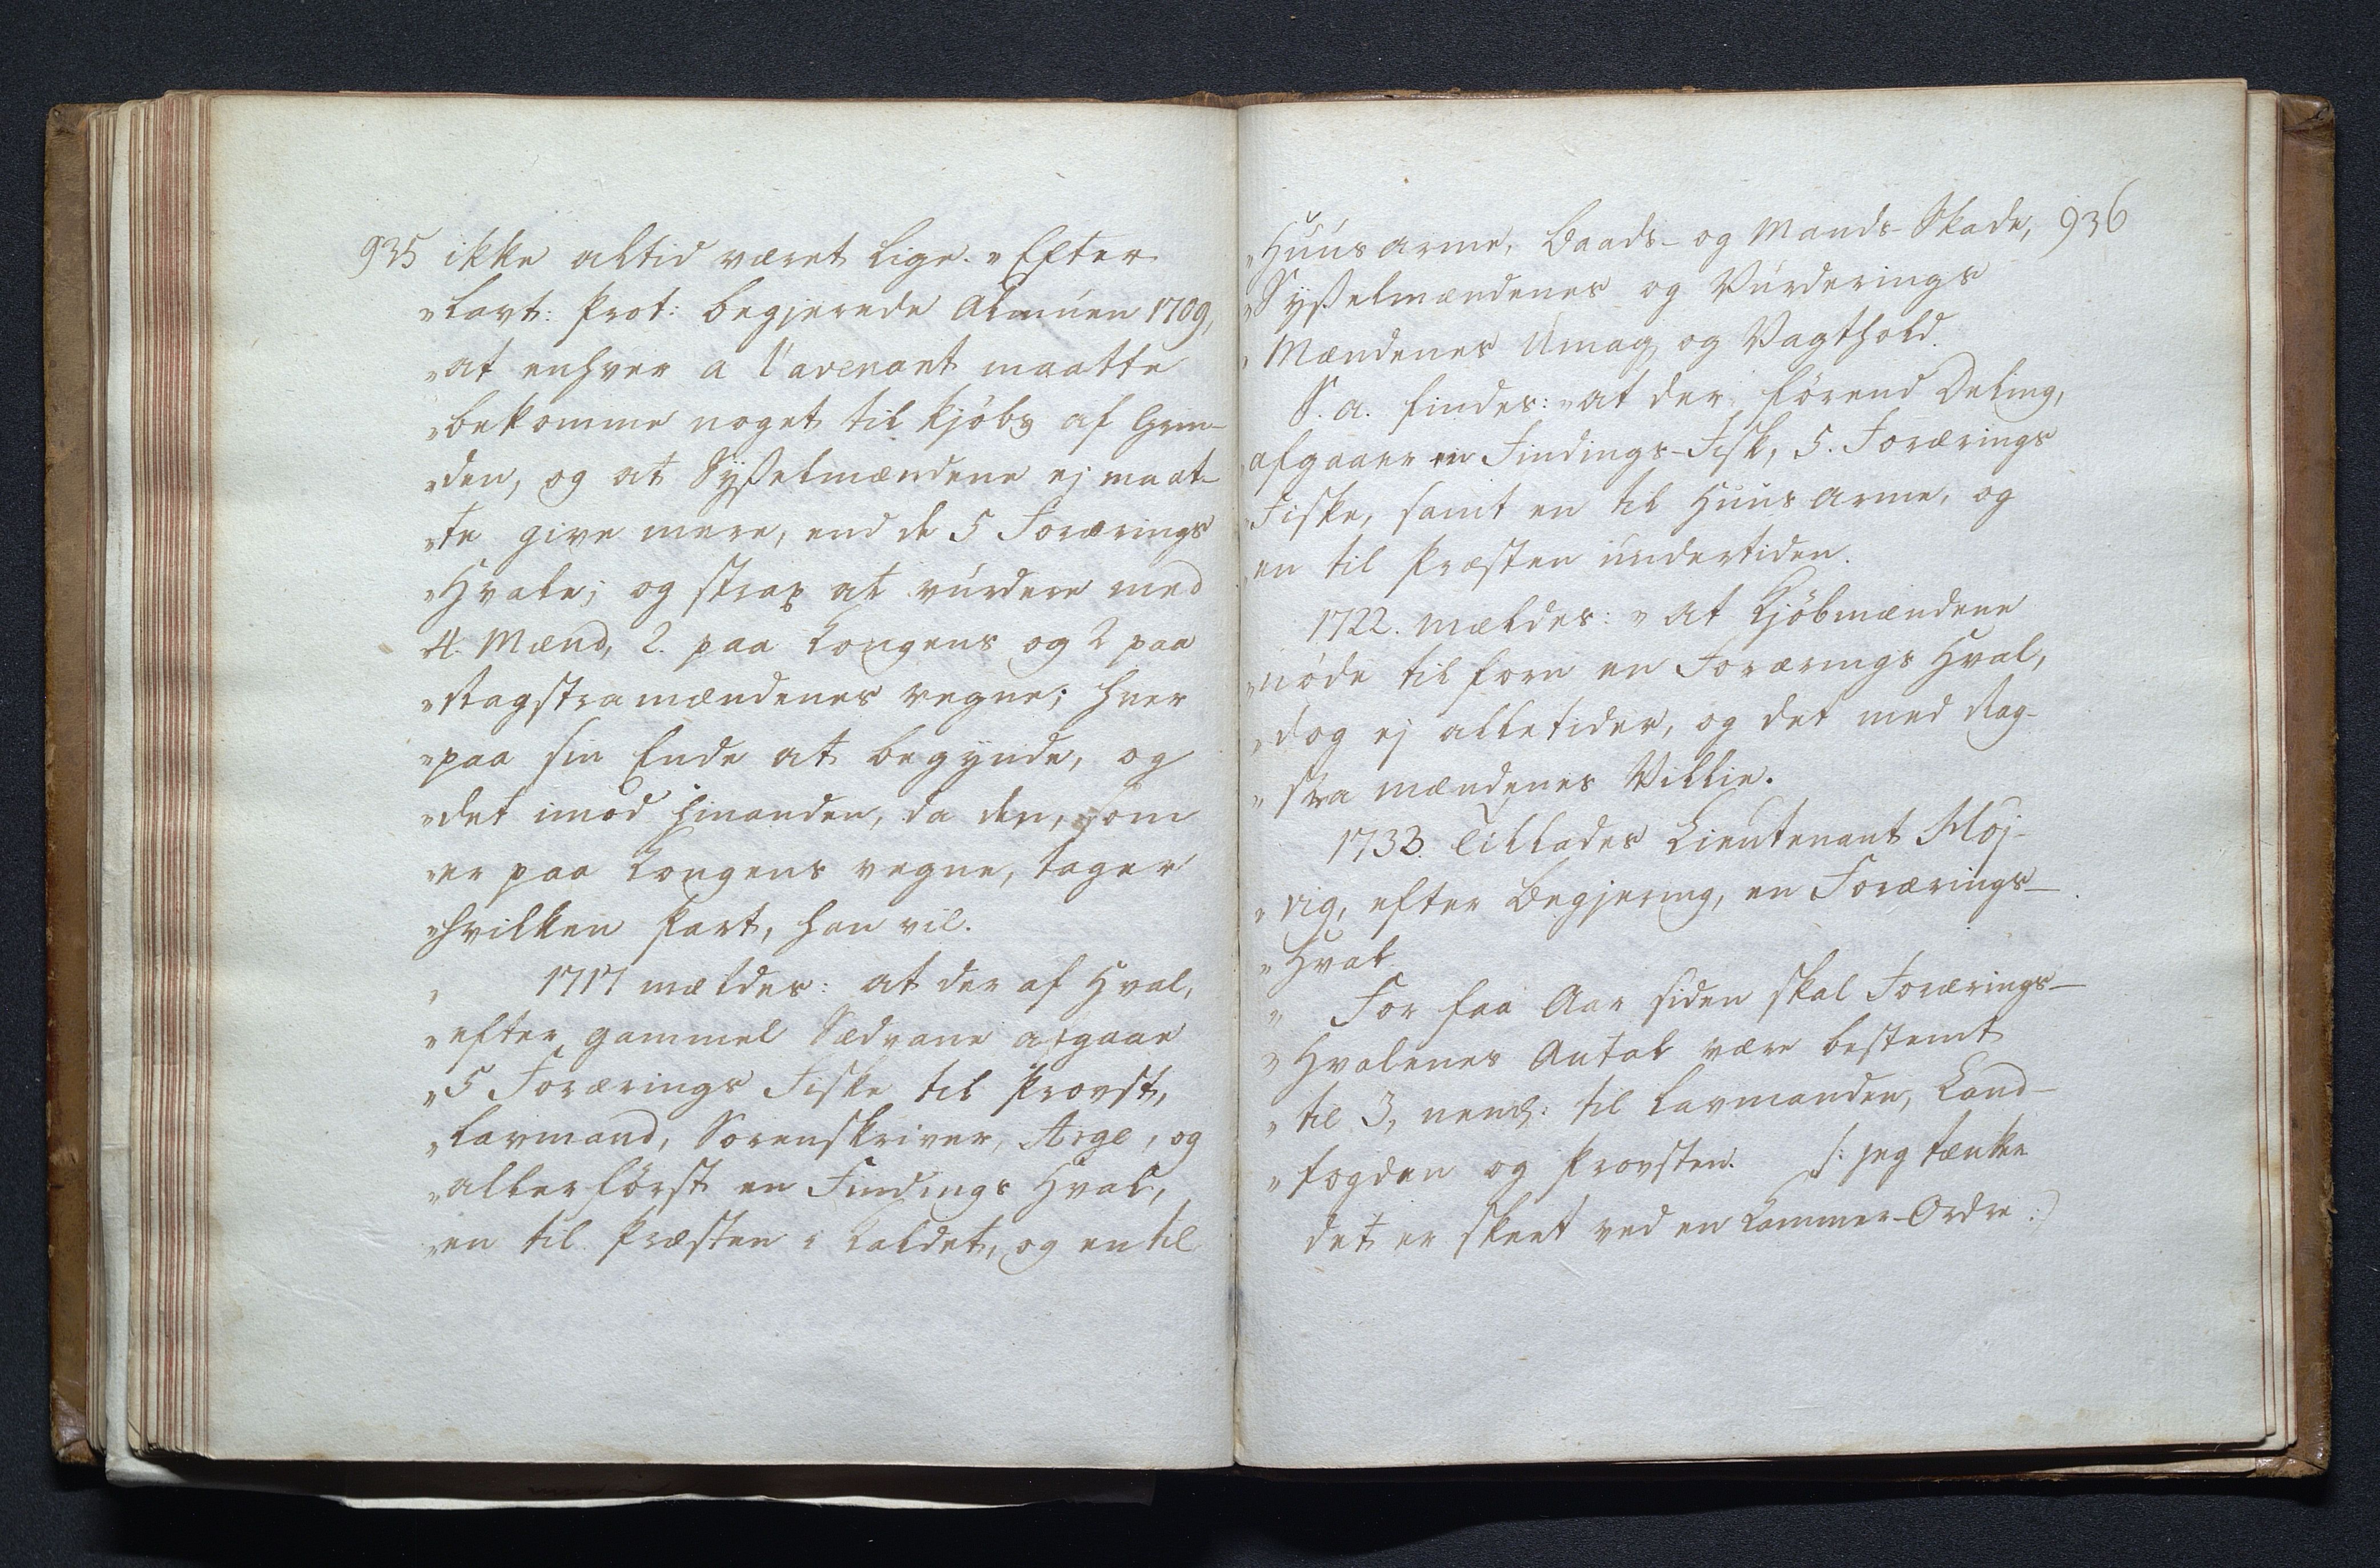 935 ikke altid været lige. „Efter
„Lavt: Prot: begjerede Almuen 1709,
„at enhver a l'avenant maatte
„bekomme noget til kjøbs af Grin-
„den, og at Sysselmændene ej maat-
„te give mere, end de 5 Forærings
„Hvale; og strax at vurdere med
4. Mænd, 2. paa Kongens og 2 paa
„Ragstramændenes vegne; hver
„paa sin Ende at begynde, og
„det imod hinanden, da den, som
„er paa Kongens vegne, tager
„hvilken Part, han vil.
„ 1717 mældes: at der af Hval,
„efter gammel Sædvane afgaar
„5 Forærings Fiske til Provst,
„Lavmand, Sorenskriver, Arge, og
„allerførst en Findings Hval,
„en til Præsten i Kaldet, og en til
„Huusarme, Baads- og Mands-Skade, 936
„Sysselmændenes og Vurderings
„Mændenes Umag og Vagthold.
S. a. findes: „at der, førend Deling,
„afgaaer en Findings-Fisk, 5. Forærings
„Fiske, samt en til Huusarme, og
„en til Præsten undertiden.
1722. mældes: „at Kjøbmændene
„nøde tilforn en Forærings Hval,
„dog ej alletider, og det med Rag-
„stra mændenes Villie.
1733. Tillades Lieutenant Kløj-
„vig, efter Begjering, en Forærings-
„Hval.
„ For faa Aar siden skal Forærings-
„Hvalenes Antal være bestemt
„til 3, neml: til Lavmanden, Land-
„fogden og Provsten. /: jeg tænker
det er skeet ved en Kammer-Ordre :)